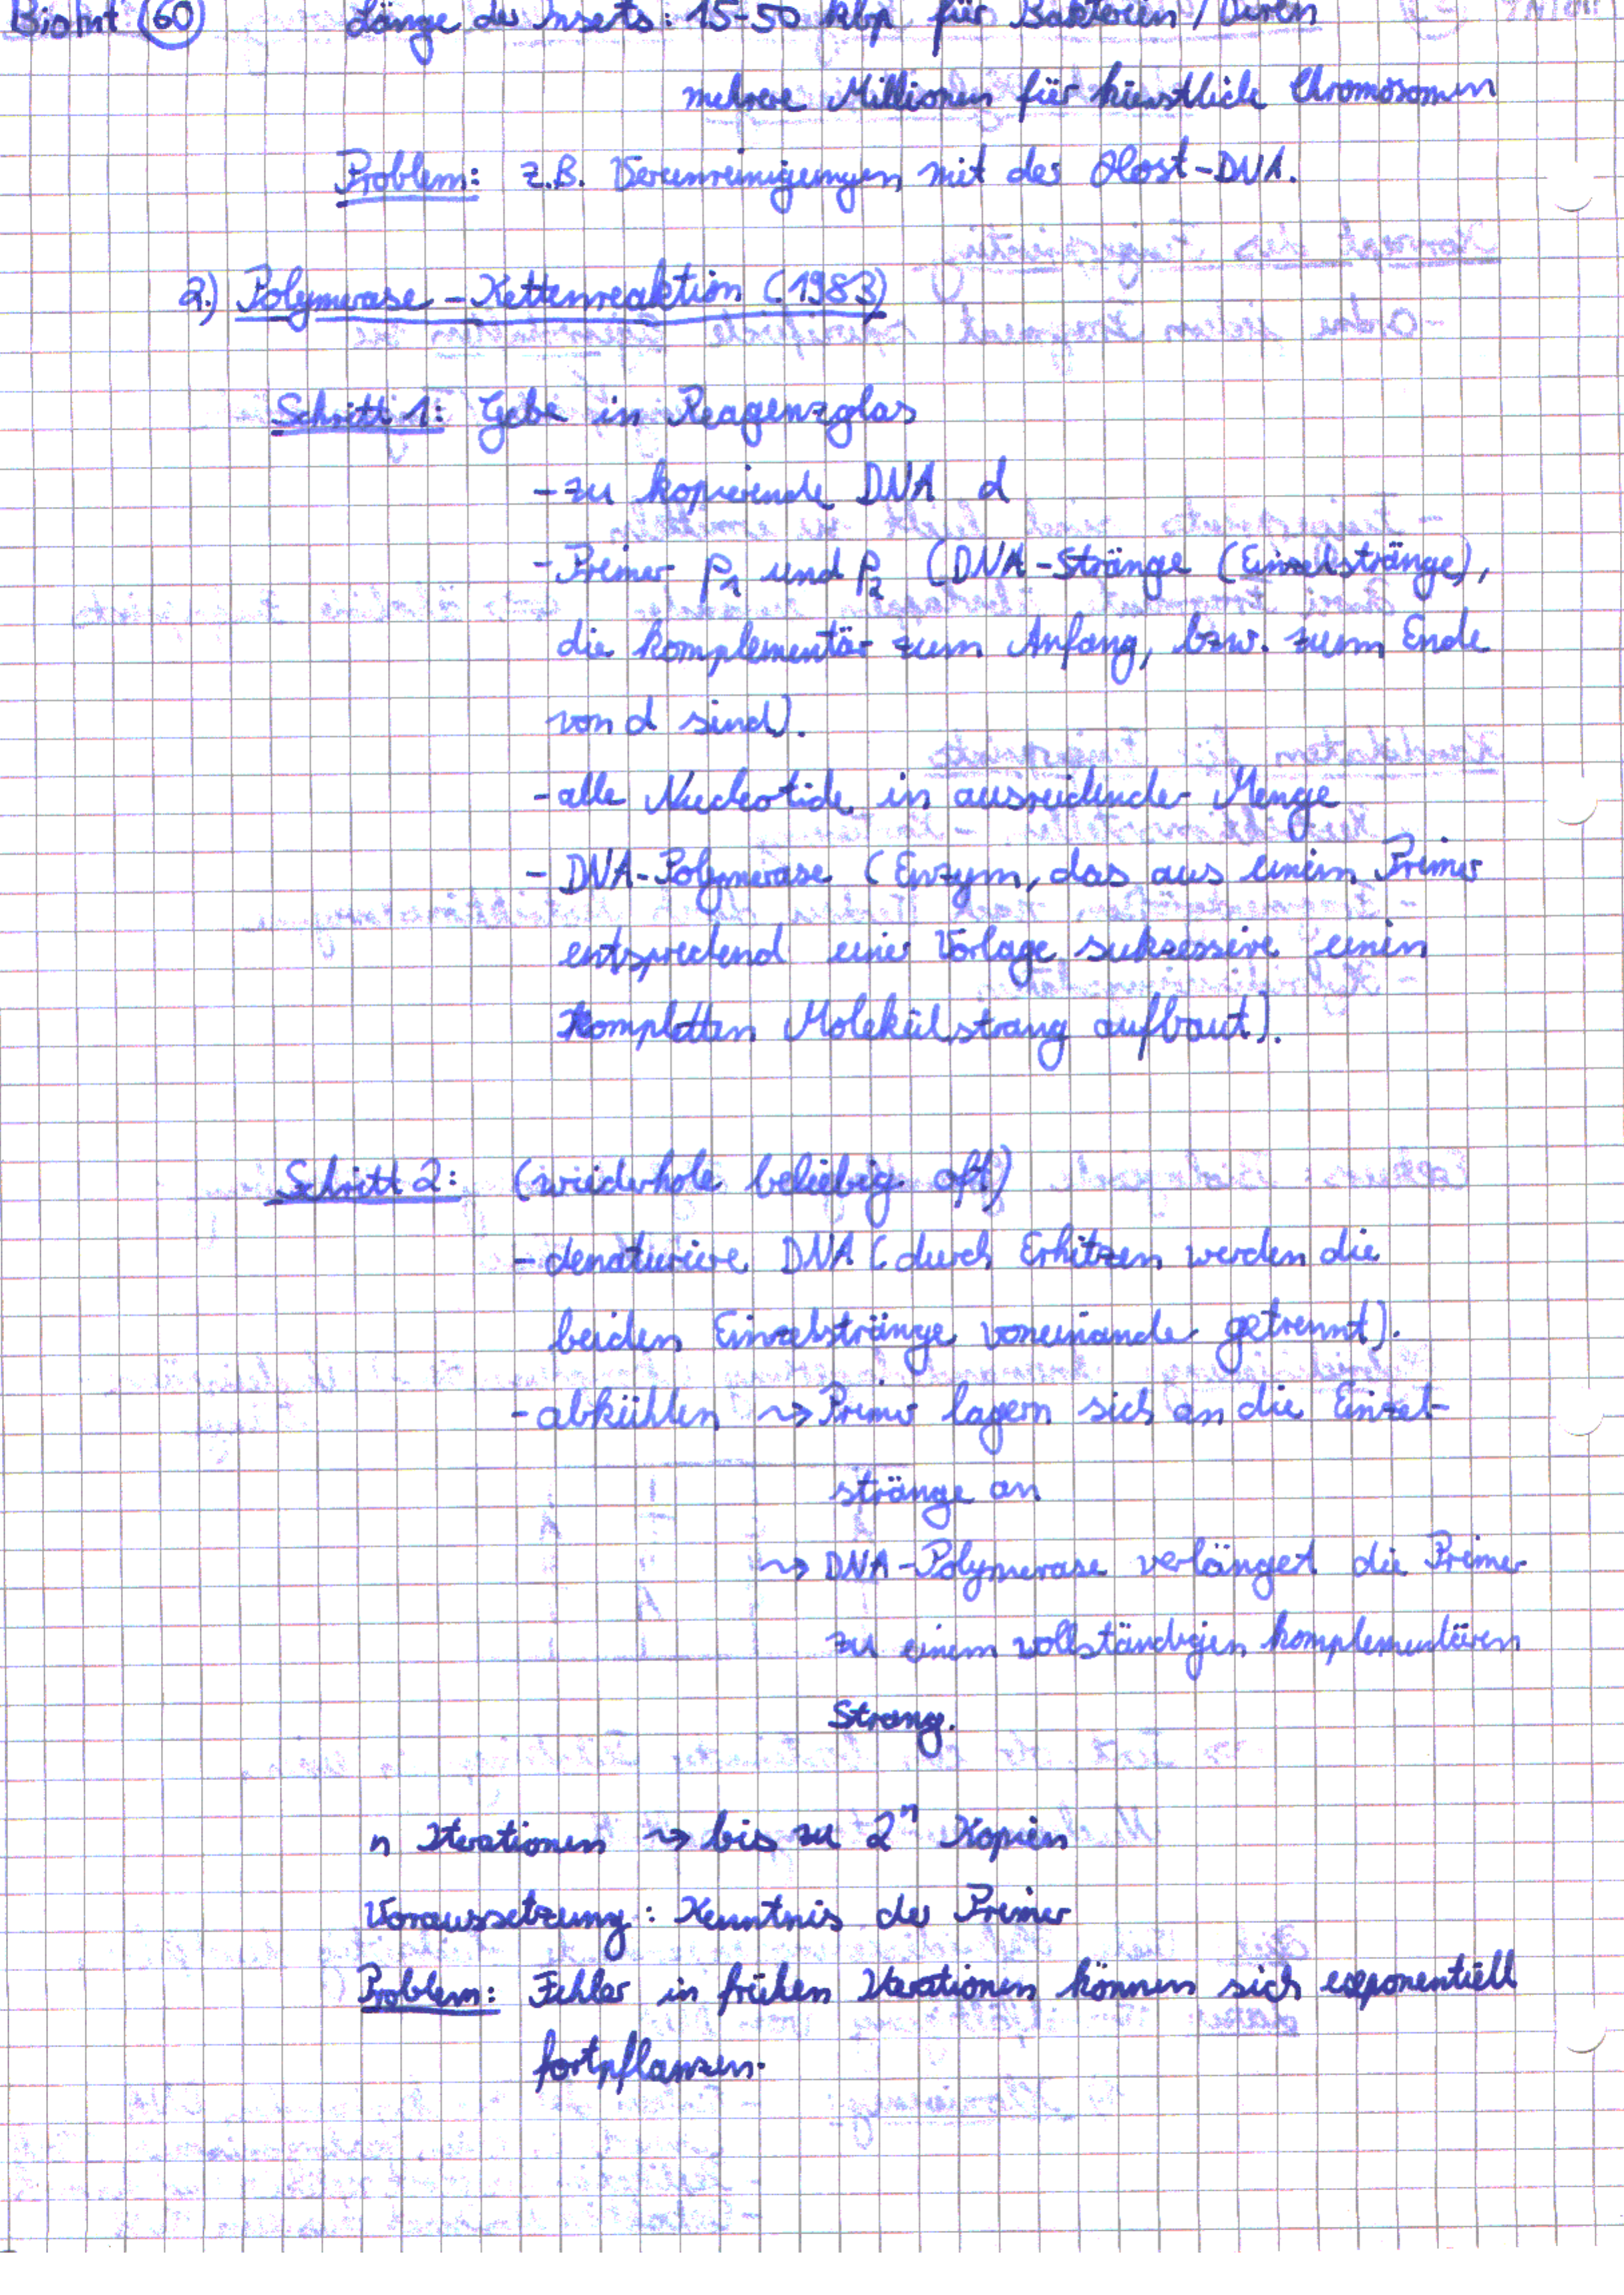 BioInf 60 Länge des Inserts: 15-50 kbp für Bakterien / Viren
mehrere Millionen für künstliche Chromosomen
Problem: z.B. Verunreinigungen mit der Host-DNA.
2.) Polymerase-Kettenreaktion (1983)
Schritt 1: Gebe in Reagenzglas
- zu kopierende DNA d
- Primer p1 und p2 (DNA-Stränge (Einzelstränge),
die komplementär zum Anfang, bzw. zum Ende
von d sind).
- alle Nucleotide in ausreichender Menge
- DNA-Polymerase (Enzym, das aus einem Primer
entsprechend einer Vorlage sukzessive einen
kompletten Molekülstrang aufbaut).
Schritt 2: (wiederhole beliebig oft)
- denaturiere DNA (durch Erhitzen werden die
beiden Einzelstränge voneinander getrennt).
- abkühlen ⤳ Primer lagern sich an die Einzel-
stränge an
⤳ DNA-Polymerase verlänget die Primer
zu einem vollständigen komplementären
Strang.
n Iterationen ⤳ bis zu 2ⁿ Kopien
Voraussetzung: Kenntnis der Primer
Problem: Fehler in frühen Iterationen können sich exponentiell
fortpflanzen.